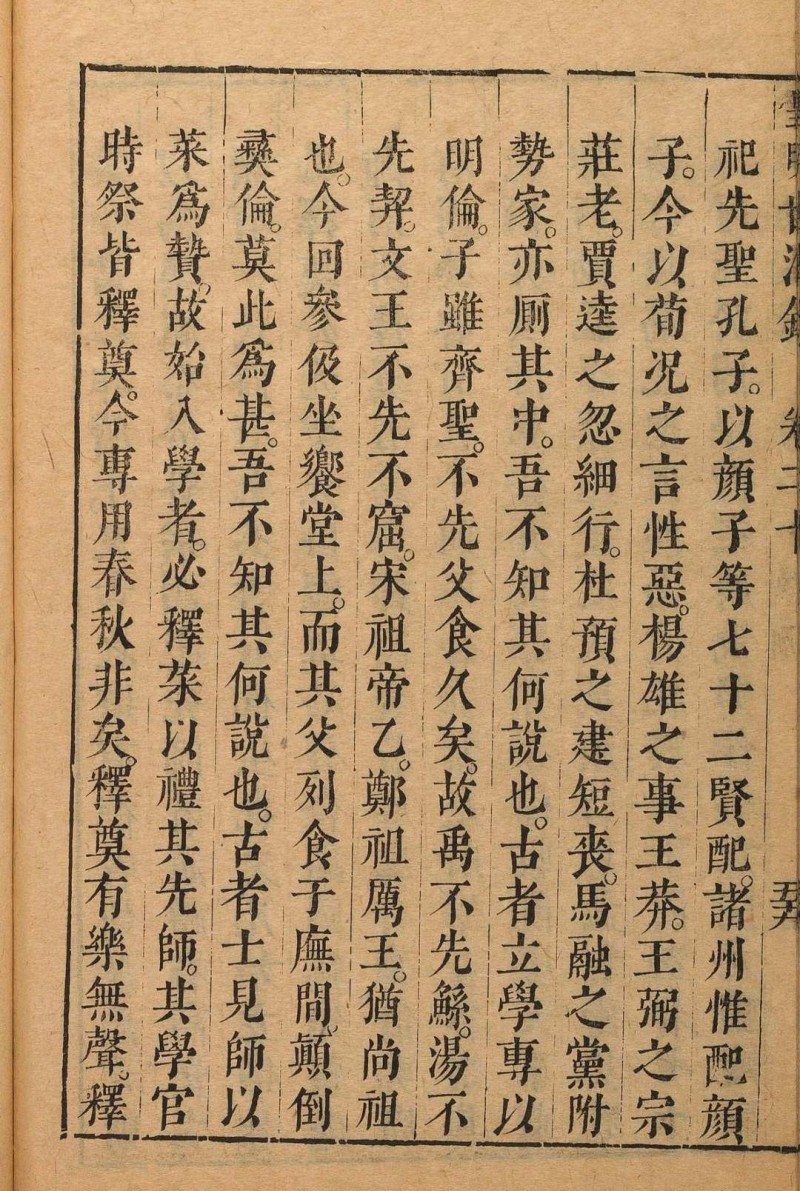 祀先聖孔子。以顔子等七十二賢配。諸州惟配顔
子。今以荀况之言性惡。楊雄之事王莽。王弼之宗
莊老。賈逵之忽細行。杜預之建短喪。馬融之黨附
勢家。亦厠其中。吾不知其何說也。古者立學專以
明倫。子雖齊聖。不先父食久矣。故禹不先鯀。湯不
先契。文王不先不窋。宋祖帝乙。鄭祖厲王。猶尚祖
也。今回參伋坐饗堂上。而其父列食于廡間。顛倒
彛倫。莫此爲甚。吾不知其何說也。古者士見師以
菜爲贄。故始入學者。必釋菜以禮其先師。其學官
時祭皆釋奠。今專用春秋非矣。釋奠有樂無聲。釋